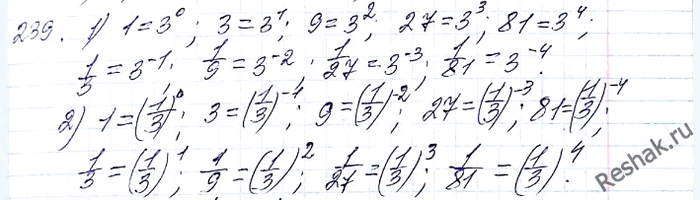 239. 1) 1=3⁰; 3=3¹; 9=3²; 27=3³; 81=3⁴;
1/3=3⁻¹; 1/9=3⁻²; 1/27=3⁻³; 1/81=3⁻⁴.
2) 1=(1/3)⁰; 3=(1/3)⁻⁴; 9=(1/3)⁻²; 27=(1/3)⁻³; 81=(1/3)⁻⁴;
1/3=(1/3)¹; 1/9=(1/3)²; 1/27=(1/3)³; 1/81=(1/3)⁴.
Reshak.ru